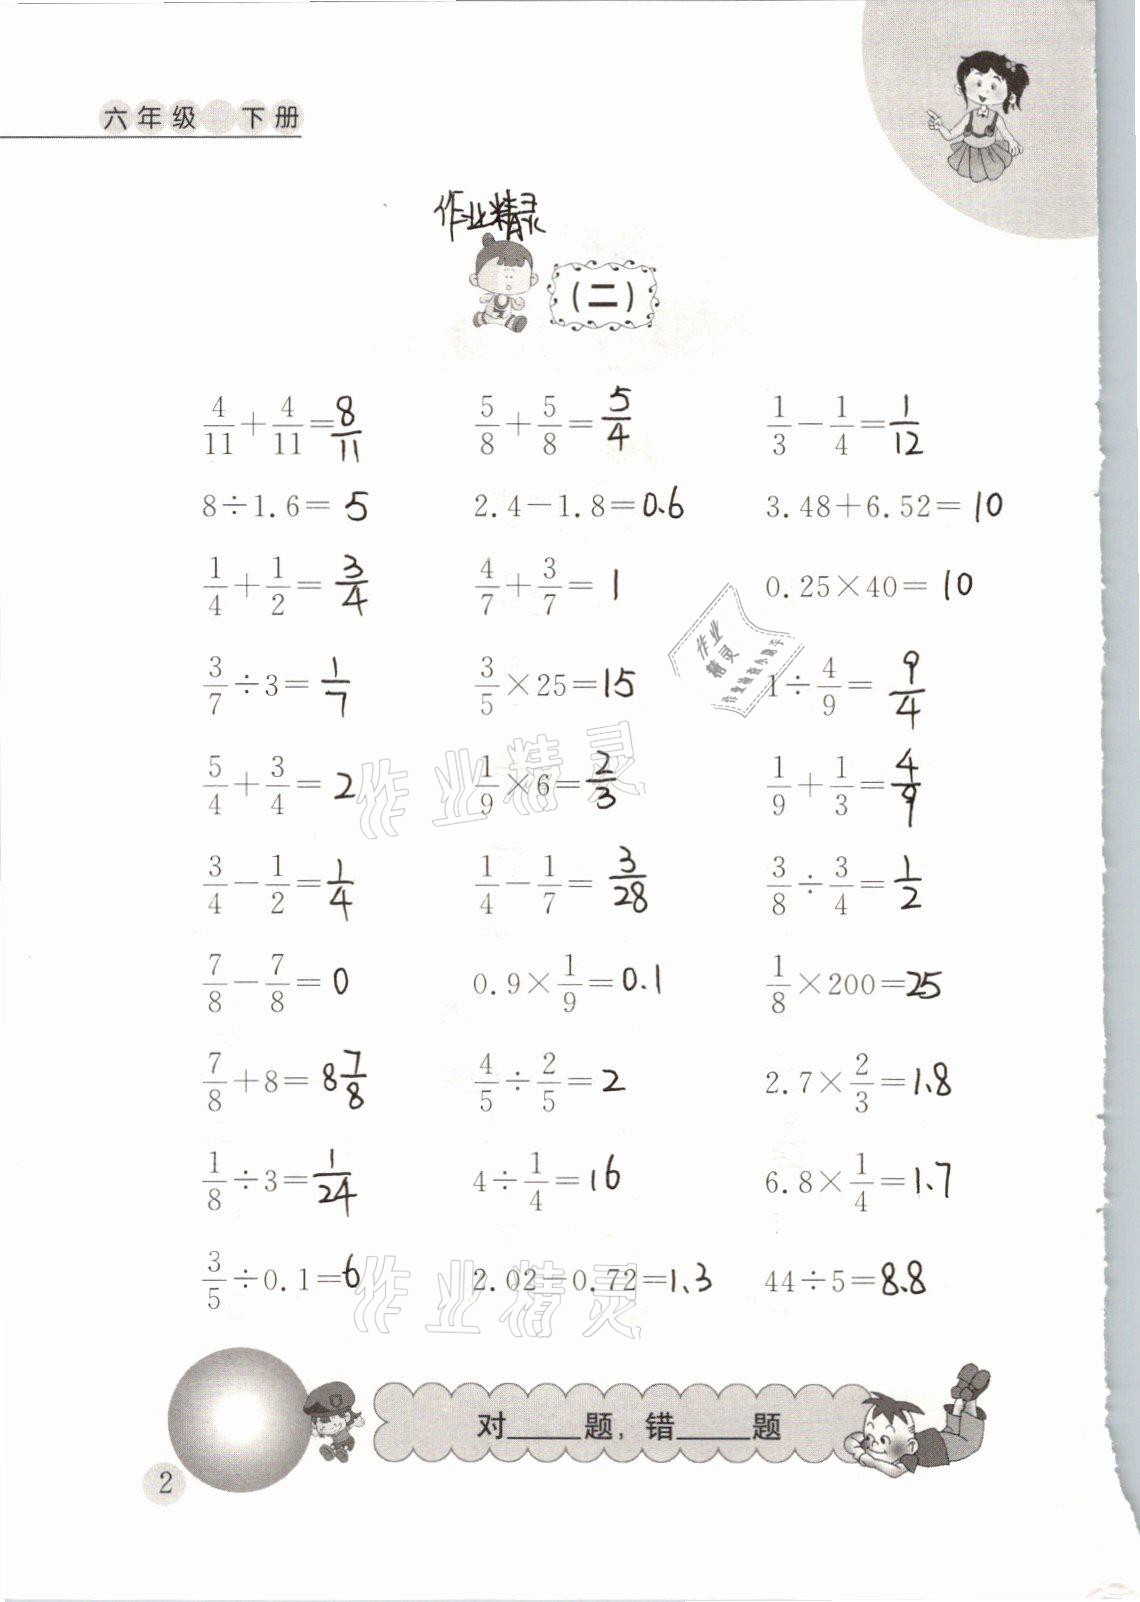 六年级 下册
作业精灵
(二)
4/11+4/11=8/11 5/8+5/8=5/4 1/3-1/4=1/12
8÷1.6=5 2.4-1.8=0.6 3.48+6.52=10
1/4+1/2=3/4 4/7+3/7=1 0.25×40=10
3/7÷3=1/7 3/5×25=15 1÷4/9=9/4
5/4+3/4=2 1/9×6=2/3 1/9+1/3=4/9
3/4-1/2=1/4 1/4-1/7=3/28 3/8÷3/4=1/2
7/8-7/8=0 0.9×1/9=0.1 1/8×200=25
7/8+8=8 7/8 4/5÷2/5=2 2.7×2/3=1.8
1/8÷3=1/24 4÷1/4=16 6.8×1/4=1.7
3/5÷0.1=6 2.02-0.72=1.3 44÷5=8.8
作业精灵
作业
精灵
作业精灵
对_____题,错_____题
2